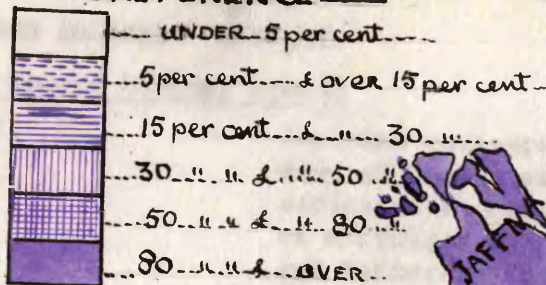 UNDER 5 per cent
5 per cent & OVER 15 per cent
15 per cent & " 30 "
30 " " & " 50 "
50 " " & " 80 "
80 " " & OVER
JAFFNA